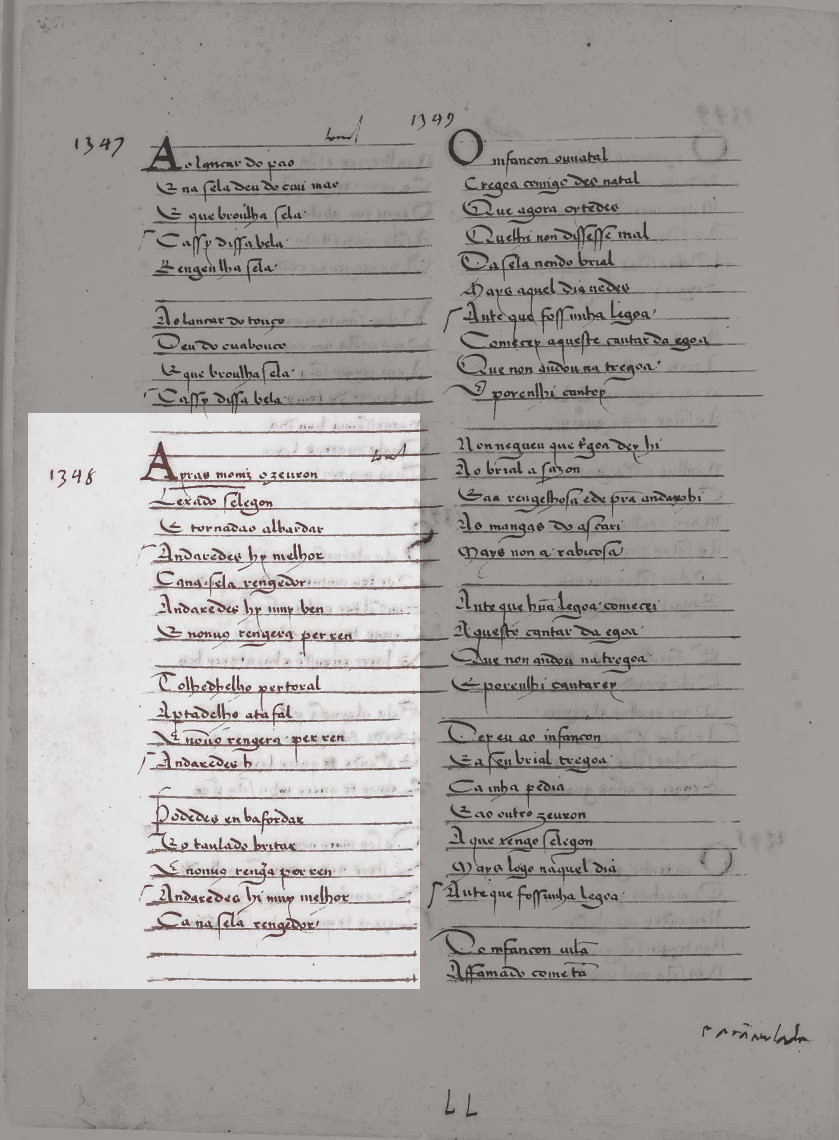 1347
Ao lançar do pao
E na sela deu do cuu mao
E que broulha sela
Cassy dissa bela
Rengeu lha sela
Ao lançar do touço
Deu do cuabouco
E que broulha sela
Cassy dissa bela
1348
Apras moniz o zeuron
Leixado selegon
E tornadao albardar
Andaredes hy melhor
Ca na sela rengedor
Andaredes hy muy ben
E nonuꝯ rengera per ren
Tolhedhelho pertoral
Aptadelho atafal
E nonuꝯ rengera per ren
Andaredes h
Podedes en bafordar
Eo taulado britar
E nonuꝯ rengera per ren
Andaredes hi muy melhor
Ca na sela rengedor
1349
O infancon ouuatal
Tregoa comigo des natal
Que agora oy tedes
Quelhi non dissesse mal
Da sela nendo brial
Mays aquel dia uedes
Ante que fossunha legoa
Comecey aqueste cantar da egoa
Que non andou na tregoa
E porenlhi cantey
Non negueu que tregoa dey hi
Ao brial a sazon
As mangas do ascari
Mays non a rabicosa
Ante que hũa legoa comecei
Aqueste cantar da egoa
Que non andou na tregoa
E porenlhi cantarey
Der eu ao infancon
E a seu brial tregoa
Ca mha pedia
E ao outro zeuron
A que rengo selegon
Mays logo naquel dia
Ante que fossunha legoa
Do infancon uilã
Affamado come cã